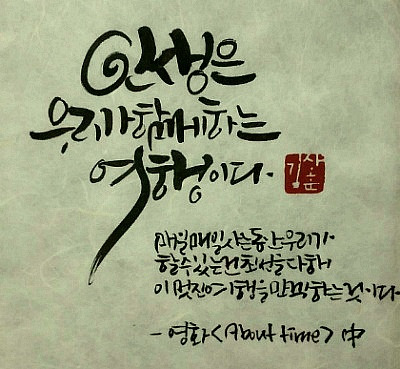 인생은
우리가 함께하는
여행이다.
매일매일 사는동안 우리가
할 수 있는 건 최선을 다해
이 멋진 여행을 만끽하는 것이다
- 영화 <About time> 中